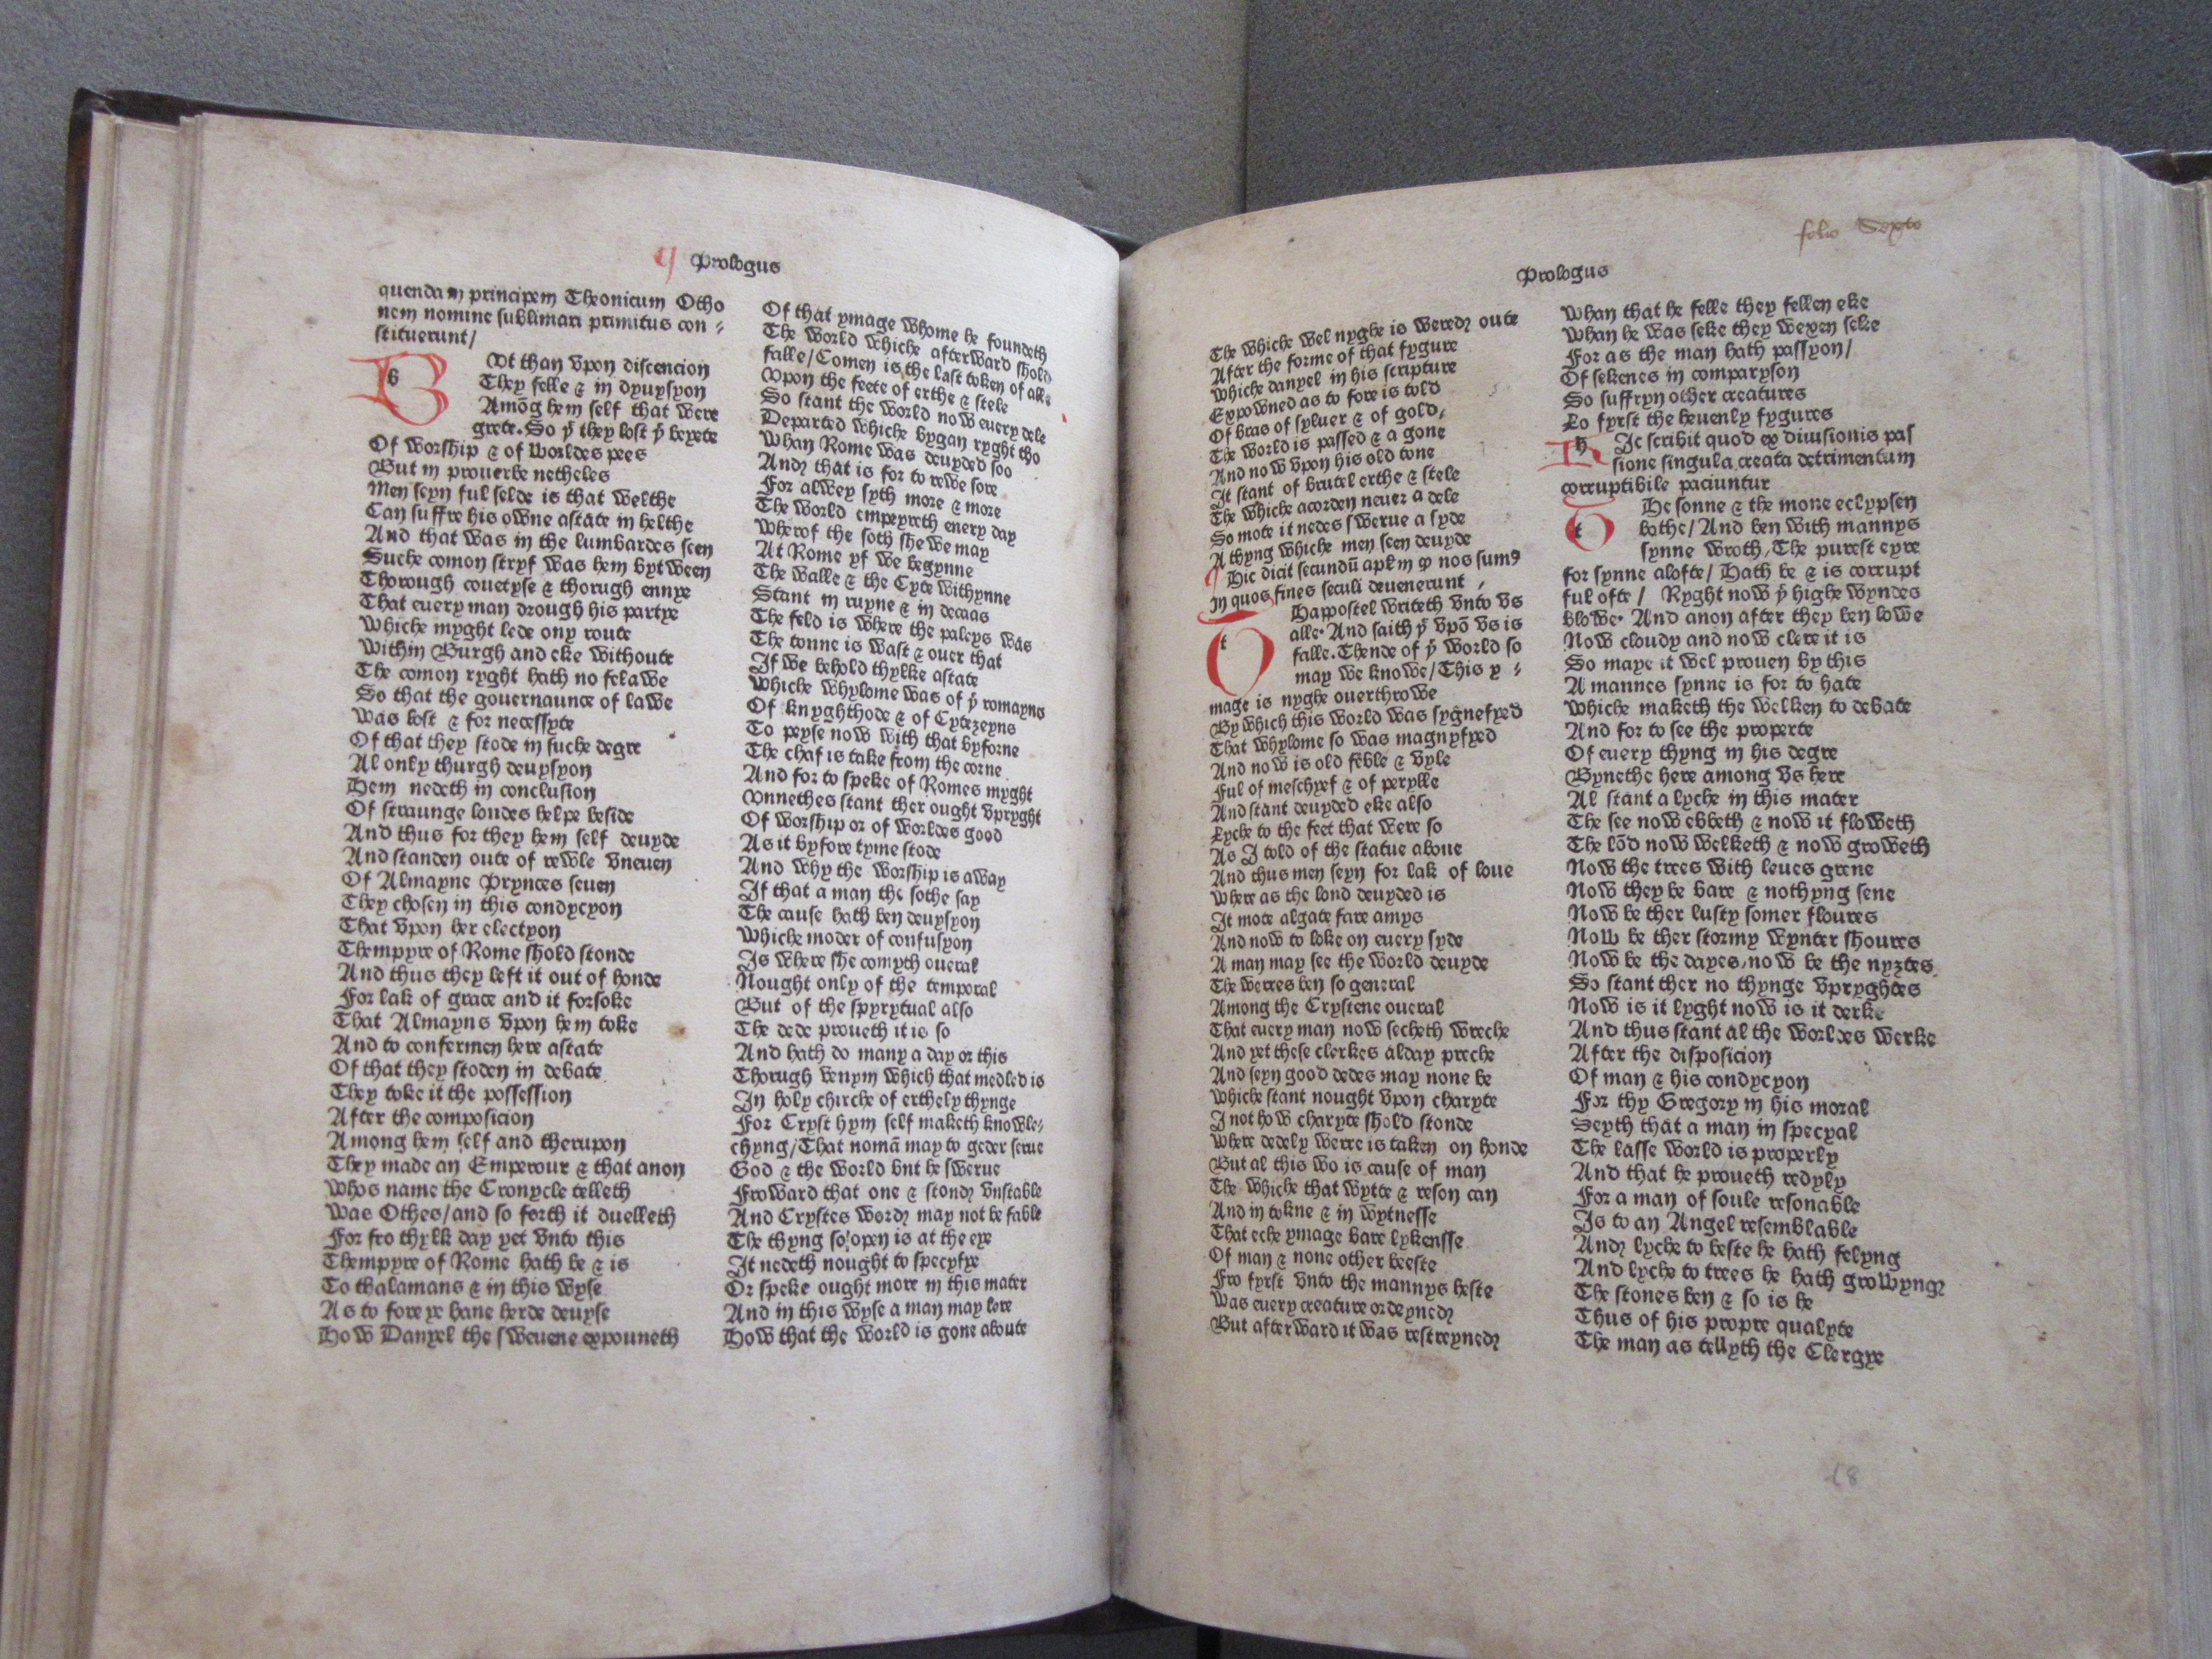 Prologus
quendam principem Theonicum Otho
nem nomine sublimari primitus con⸗
stituerunt/
B
Vt than vpon discencion
They felle & in dyuysyon
Amōg hem self that were
grete. So yͭ they lost yͤ beyete
Of worship & of worldes pees
But in prouerbe netheles
Men seyn ful selde is that welthe
Can suffre his owne astate in helthe
And that was in the lumbardes seen
Suche comon stryf was hem bytween
Thorough couetyse & thorugh enuye
That euery man drough his partye
Whiche myght lede ony route
Within Burgh and eke withoute
The comon ryght hath no felawe
So that the gouernaunce of lawe
Was lost & for necessyte
Of that they stode in suche degre
Al only thurgh deuysyon
Hem nedeth in conclusion
Of straunge londes helpe beside
And thus for they hem self deuyde
And standen oute of rewle vneuen
Of Almayne Prynces seuen
They chosen in this condycyon
That vpon her electyon
Thempyre of Rome shold stonde
And thus they left it out of honde
For lak of grace and it forsoke
That Almayns vpon hem toke
And to confermen here astate
Of that they stoden in debate
They toke it the possession
After the composicion
Among hem self and therupon
They made an Emperour & that anon
Whos name the Cronycle telleth
Was Othes/and so forth it duelleth
For fro thylk day yet vnto this
Thempyre of Rome hath be & is
To thalamans & in this wyse
As to fore ye haue herde deuyse
How Danyel the sweuene expouneth
Of that ymage whome he foundeth
The world whiche afterward shold
falle/Comen is the last token of alle
Vpon the feete of erthe & stele
So stant the world now euery dele
Departed whiche bygan ryght tho
Whan Rome was deuyded soo
And that is for to rewe sore
For alwey syth more & more
The world empeyreth euery day
Wherof the soth shewe may
At Rome yf we begynne
The walle & the Cyte withynne
Stant in ruyne & in decaas
The feld is where the paleys was
The tonne is wast & ouer that
If we behold thylke astate
Whiche whylome was of yͤ romayns
Of knyghthode & of Cytezeyns
To peyse now with that byforne
The chaf is take from the corne
And for to speke of Romes myght
Vnnethes stant ther ought vpryght
Of worship or of worldes good
As it byfore tyme stode
And why the worship is away
If that a man the sothe say
The cause hath ben deuysyon
Whiche moder of confusyon
Is where she comyth oueral
Nought only of the temporal
But of the spyrytual also
The dede proueth it is so
And hath do many a day or this
Thorugh venym which that medled is
In holy chirche of erthely thynge
For Cryst hym self maketh knowle⸗
chyng/That nomā may to geder serue
God & the world but he swerue
Froward that one & stond vnstable
And Crystes word may not be fable
The thyng so open is at the eye
It nedeth nought to specyfye
Or speke ought more in this mater
And in this wyse a man may lere
How that the world is gone aboute
folio Sexto
Prologus
The whiche wel nyghe is wered oute
After the forme of that fygure
Whiche danyel in his scripture
Expowned as to fore is told
Of bras of syluer & of gold,
The world is passed & a gone
And now vpon his old tone
It stant of brutel erthe & stele
The whiche acorden neuer a dele
So mote it nedes swerue a syde
A thyng whiche men seen deuyde
Hic dicit secundū apłm ꝙ nos sumꝰ
in quos fines seculi deuenerunt ,
T
Happostel writeth vnto vs
alle. And saith yͭ vpō vs is
falle. Thende of yͤ world so
may we knowe/This y ⸗
mage is nyghe ouerthrowe
By which this world was sygnefyed
That whylome so was magnyfyed
And now is old feble & vyle
Ful of meschyef & of perylle
And stant deuyded eke also
Lyche to the feet that were so
As I told of the statue aboue
And thus men seyn for lak of loue
Where as the lond deuyded is
It mote algate fare amys
And now to loke on euery syde
A man may see the world deuyde
The werres ben so general
Among the Crystene oueral
That euery man now secheth wreche
And yet these clerkes alday preche
And seyn good dedes may none be
Whiche stant nought vpon charyte
I not how charyte shold stonde
Where dedely werre is taken on honde
But al this wo is cause of man
The whiche that wytte & reson can
And in tokne & in wytnesse
That eche ymage bare lykensse
Of man & none other beeste
Fro fyrst vnto the mannys heste
Was euery creature ordeyned
But afterward it was restreyned
Whan that he felle they fellen eke
Whan he was seke they wexen seke
For as the man hath passyon/
Of sekenes in comparyson
So suffryn other creatures
Lo fyrst the heuenly fygures
H
Ic scribit quod ex diuisionis pas
sione singula creata detrimentum
corruptibile paciuntur
T
He sonne & the mone eclypsen
bothe/And ben with mannys
synne wroth, The purest eyre
for synne alofte/ Hath be & is corrupt
ful ofte / Ryght now yͤ highe wyndes
blowe. And anon after they ben lowe
Now cloudy and now clere it is
So maye it wel prouen by this
A mannes synne is for to hate
Whiche maketh the welken to debate
And for to see the properte
Of euery thyng in his degre
Bynethe here among vs here
Al stant a lyche in this mater
The see now ebbeth & now it floweth
The lōd now welketh & now groweth
Now the trees with leues grene
Now they be bare & nothyng sene
Now be ther lusty somer floures
Now be ther stormy wynter shoures
Now be the dayes, now be the nyztes
So stant ther no thynge vpryghtes
Now is it lyght now is it derke
And thus stant al the worldes werke
After the disposicion
Of man & his condycyon
For thy Gregory in his moral
Seyth that a man in specyal
The lasse world is properly
And that he proueth redyly
For a man of soule resonable
Is to an Angel resemblable
And lyche to beste he hath felyng
And lyche to trees he hath growyng
The stones ben & so is he
Thus of his propre qualyte
The man as tellyth the Clergye
18